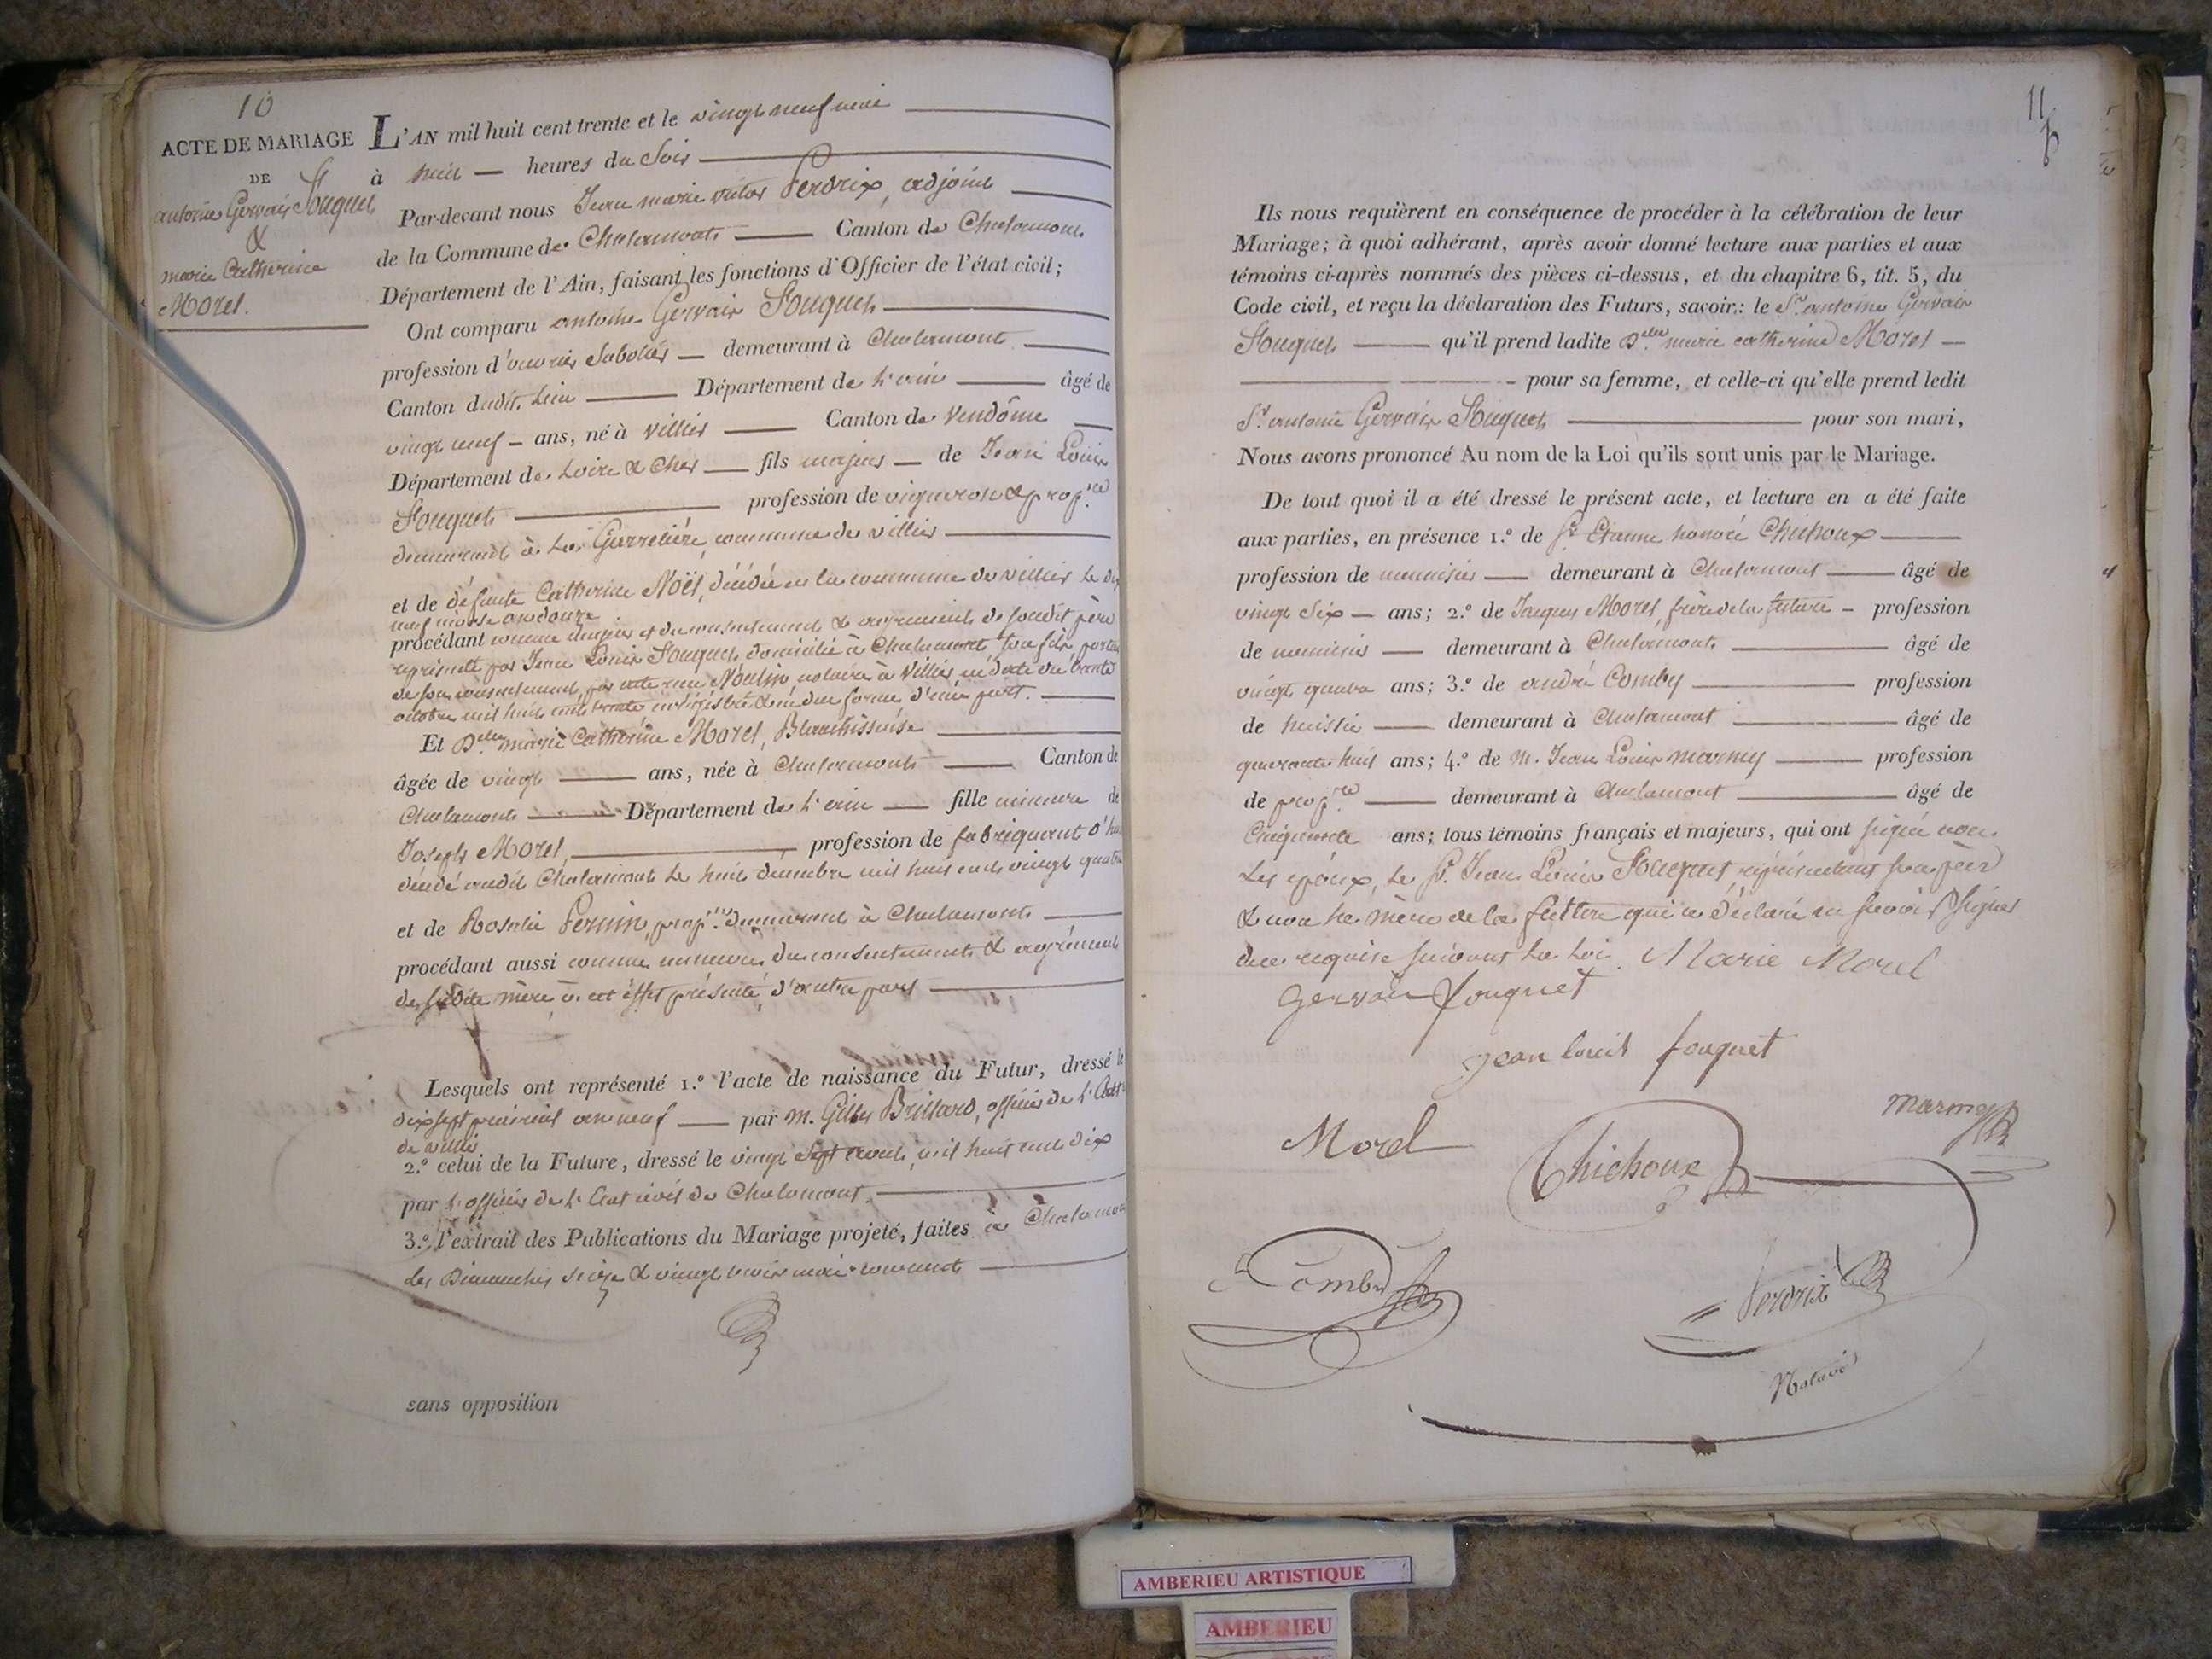 10
ACTE DE MARIAGE
DE
antoine Gervais Fouquet
&
marie Catherine
Morel.
L'AN mil huit cent trente et le vingt neuf mai
à huit heures du Soir
Par-devant nous Jean marie victor Perdrix, adjoint
de la Commune de Chalamont Canton de Chalamont
Département de l'Ain, faisant les fonctions d'Officier de l'état civil;
Ont comparu antoine Gervais Fouquet
profession d'ouvrier Sabotier demeurant à Chalamont
Canton dudit Lieu Département de l'ain âgé de
vingt neuf ans, né à villiers Canton de Vendôme
Département de Loire & Cher fils majeur de Jean Louis
Fouquet profession de vigneron & prop.re
demeurant à La Garrelière, commune de villiers
et de défunte Catherine Noël, décédée en la commune de villiers le dix
neuf nivose an douze
procédant comme majeur et du consentement & agrément de sondit père
représenté par Jean Louis Fouquet, domicilié à Chalamont, son fils, porteur
de son consentement, par acte reçu Noulin notaire à Villiers en date du trente
octobre mil huit cent enregistré & en due forme d'une part.
Et D.elle marie Catherine Morel, Blanchisseuse
âgée de vingt ans, née à Chalamont Canton de
Chalamont Département de l'ain fille mineure de
Joseph Morel, profession de fabriquant d'hui
décédé audit Chalamont le huit décembre mil huit cent vingt quatre
et de Rosalie Pernin, prop.re demeurant à Chalamont
procédant aussi comme mineure du consentement & agrément
de sadite mère à cet effet présente, d'autre part
Lesquels ont représenté 1.º l'acte de naissance du Futur, dressé le
dix sept prairial an neuf par m. Gilles Brillard, officier de l'Etat
de villiers
2.º celui de la Future, dressé le vingt Sept avril, mil huit cent dix
par l'officier de l'Etat civil de Chalamont.
3.º l'extrait des Publications du Mariage projeté, faites à Chalamont
Les Dimanches seize & vingt trois mai courant
sans opposition
11
Ils nous requièrent en conséquence de procéder à la célébration de leur
Mariage; à quoi adhérant, après avoir donné lecture aux parties et aux
témoins ci-après nommés des pièces ci-dessus, et du chapitre 6, tit. 5, du
Code civil, et reçu la déclaration des Futurs, savoir: le S.r antoine Gervais
Fouquet qu'il prend ladite D.elle marie catherine Morel
pour sa femme, et celle-ci qu'elle prend ledit
S.r antoine Gervais Fouquet pour son mari,
Nous avons prononcé Au nom de la Loi qu'ils sont unis par le Mariage.
De tout quoi il a été dressé le présent acte, et lecture en a été faite
aux parties, en présence 1.º de S.r Etienne honoré Chichoux
profession de menuisier demeurant à Chalamont âgé de
vingt Six ans; 2.º de Jacques Morel, frère de la future profession
de menuisier demeurant à Chalamont âgé de
vingt quatre ans; 3.º de andré Comby profession
de huissier demeurant à Chalamont âgé de
quarante huit ans; 4.º de M. Jean Louis Marmy profession
de prop.re demeurant à Chalamont âgé de
Cinquante ans; tous témoins français et majeurs, qui ont signé avec
Les époux, le S.r Jean Louis Fouquet, représentant son père
& non la mère de la future qui a déclaré ne savoir signer
de ce requise suivant la loi. Marie Morel
Gervais fouquet
jean louis fouquet
Morel
Chichoux
marmy
Comby
Perdrix
Notaire
AMBERIEU ARTISTIQUE
AMBERIEU